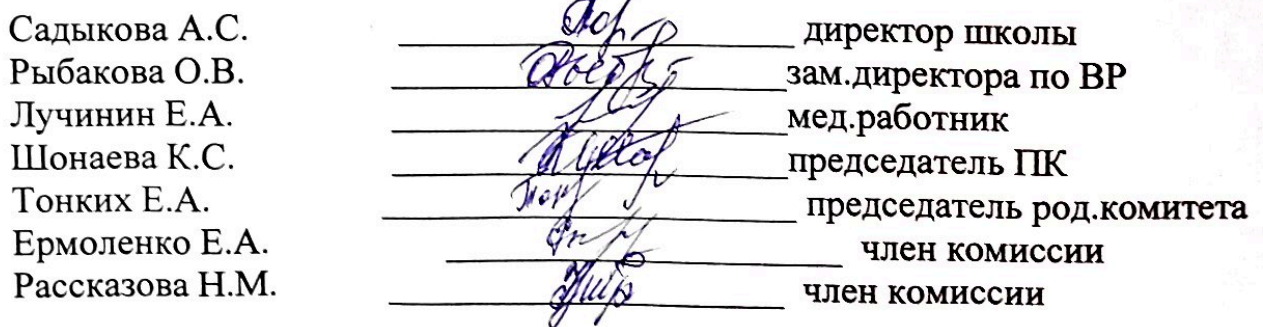 Садыкова А.С. директор школы
Рыбакова О.В. зам.директора по ВР
Лучинин Е.А. мед.работник
Шонаева К.С. председатель ПК
Тонких Е.А. председатель род.комитета
Ермоленко Е.А. член комиссии
Рассказова Н.М. член комиссии